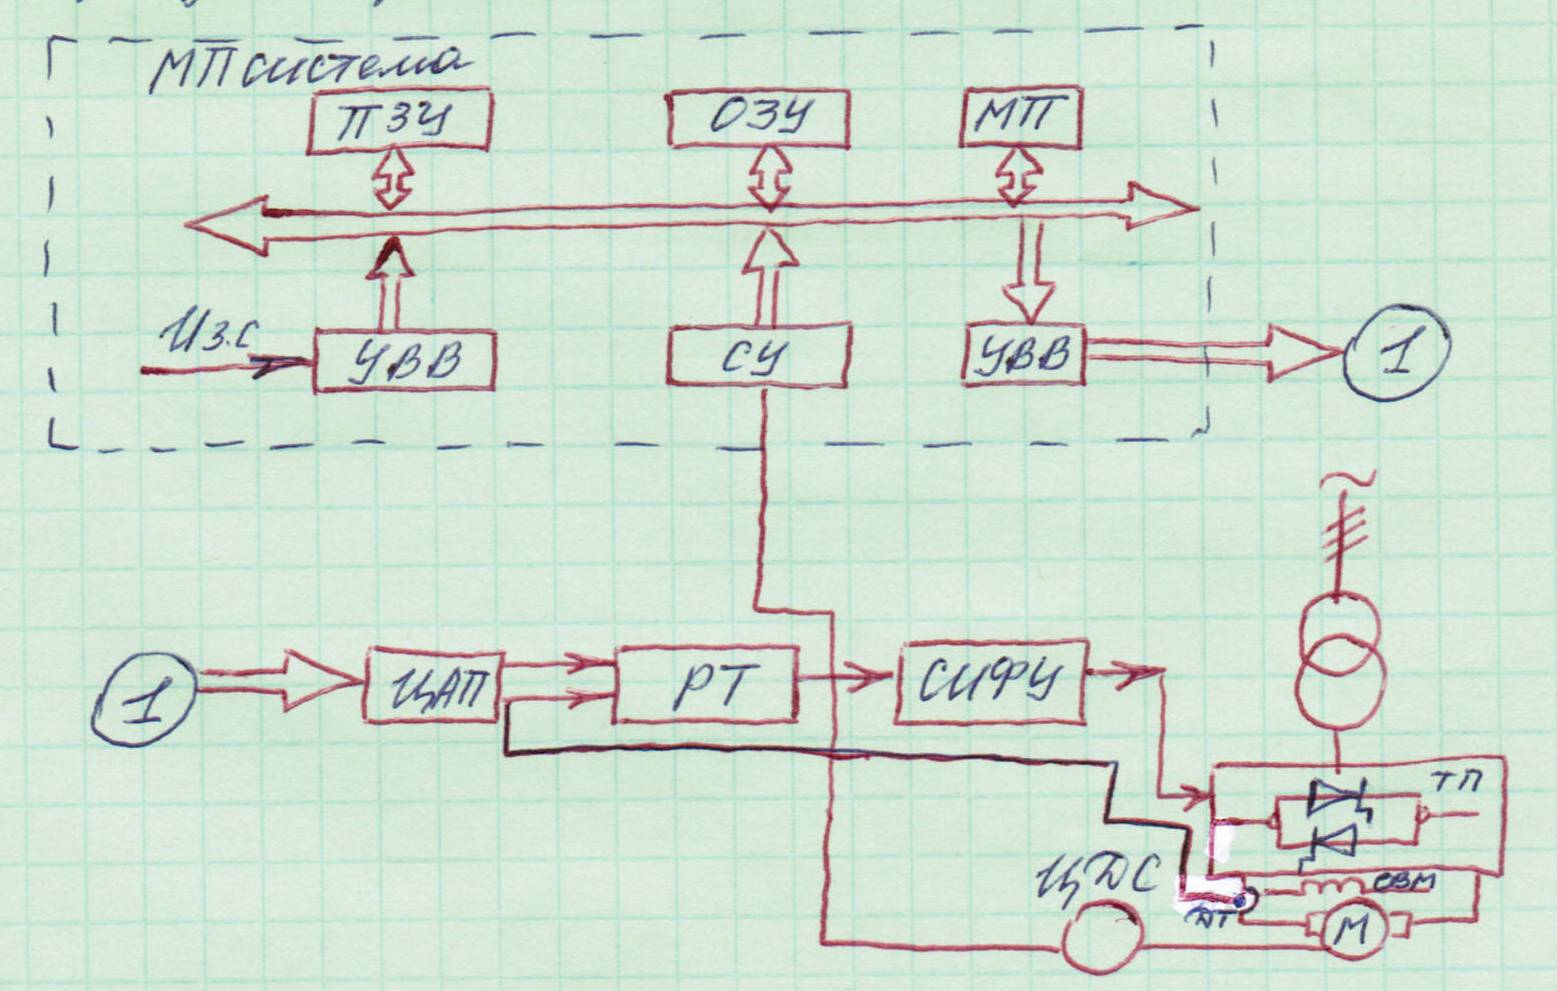 МП система
ПЗУ ОЗУ МП
Uз.с
УВВ СУ УВВ 1
1 ЦАП РТ СИФУ
ТП
ЦДС ОВМ
ДТ М